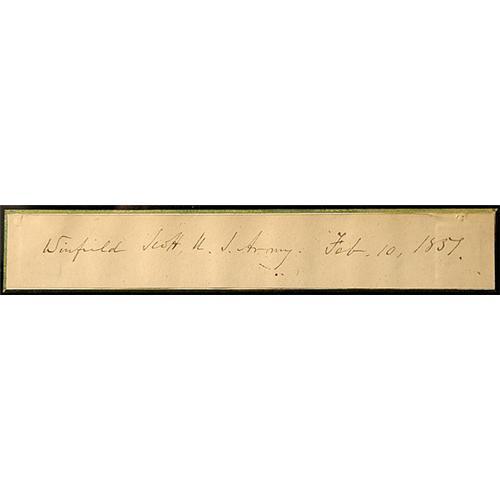 Winfield Scott U. S. Army. Feb. 10, 1857.